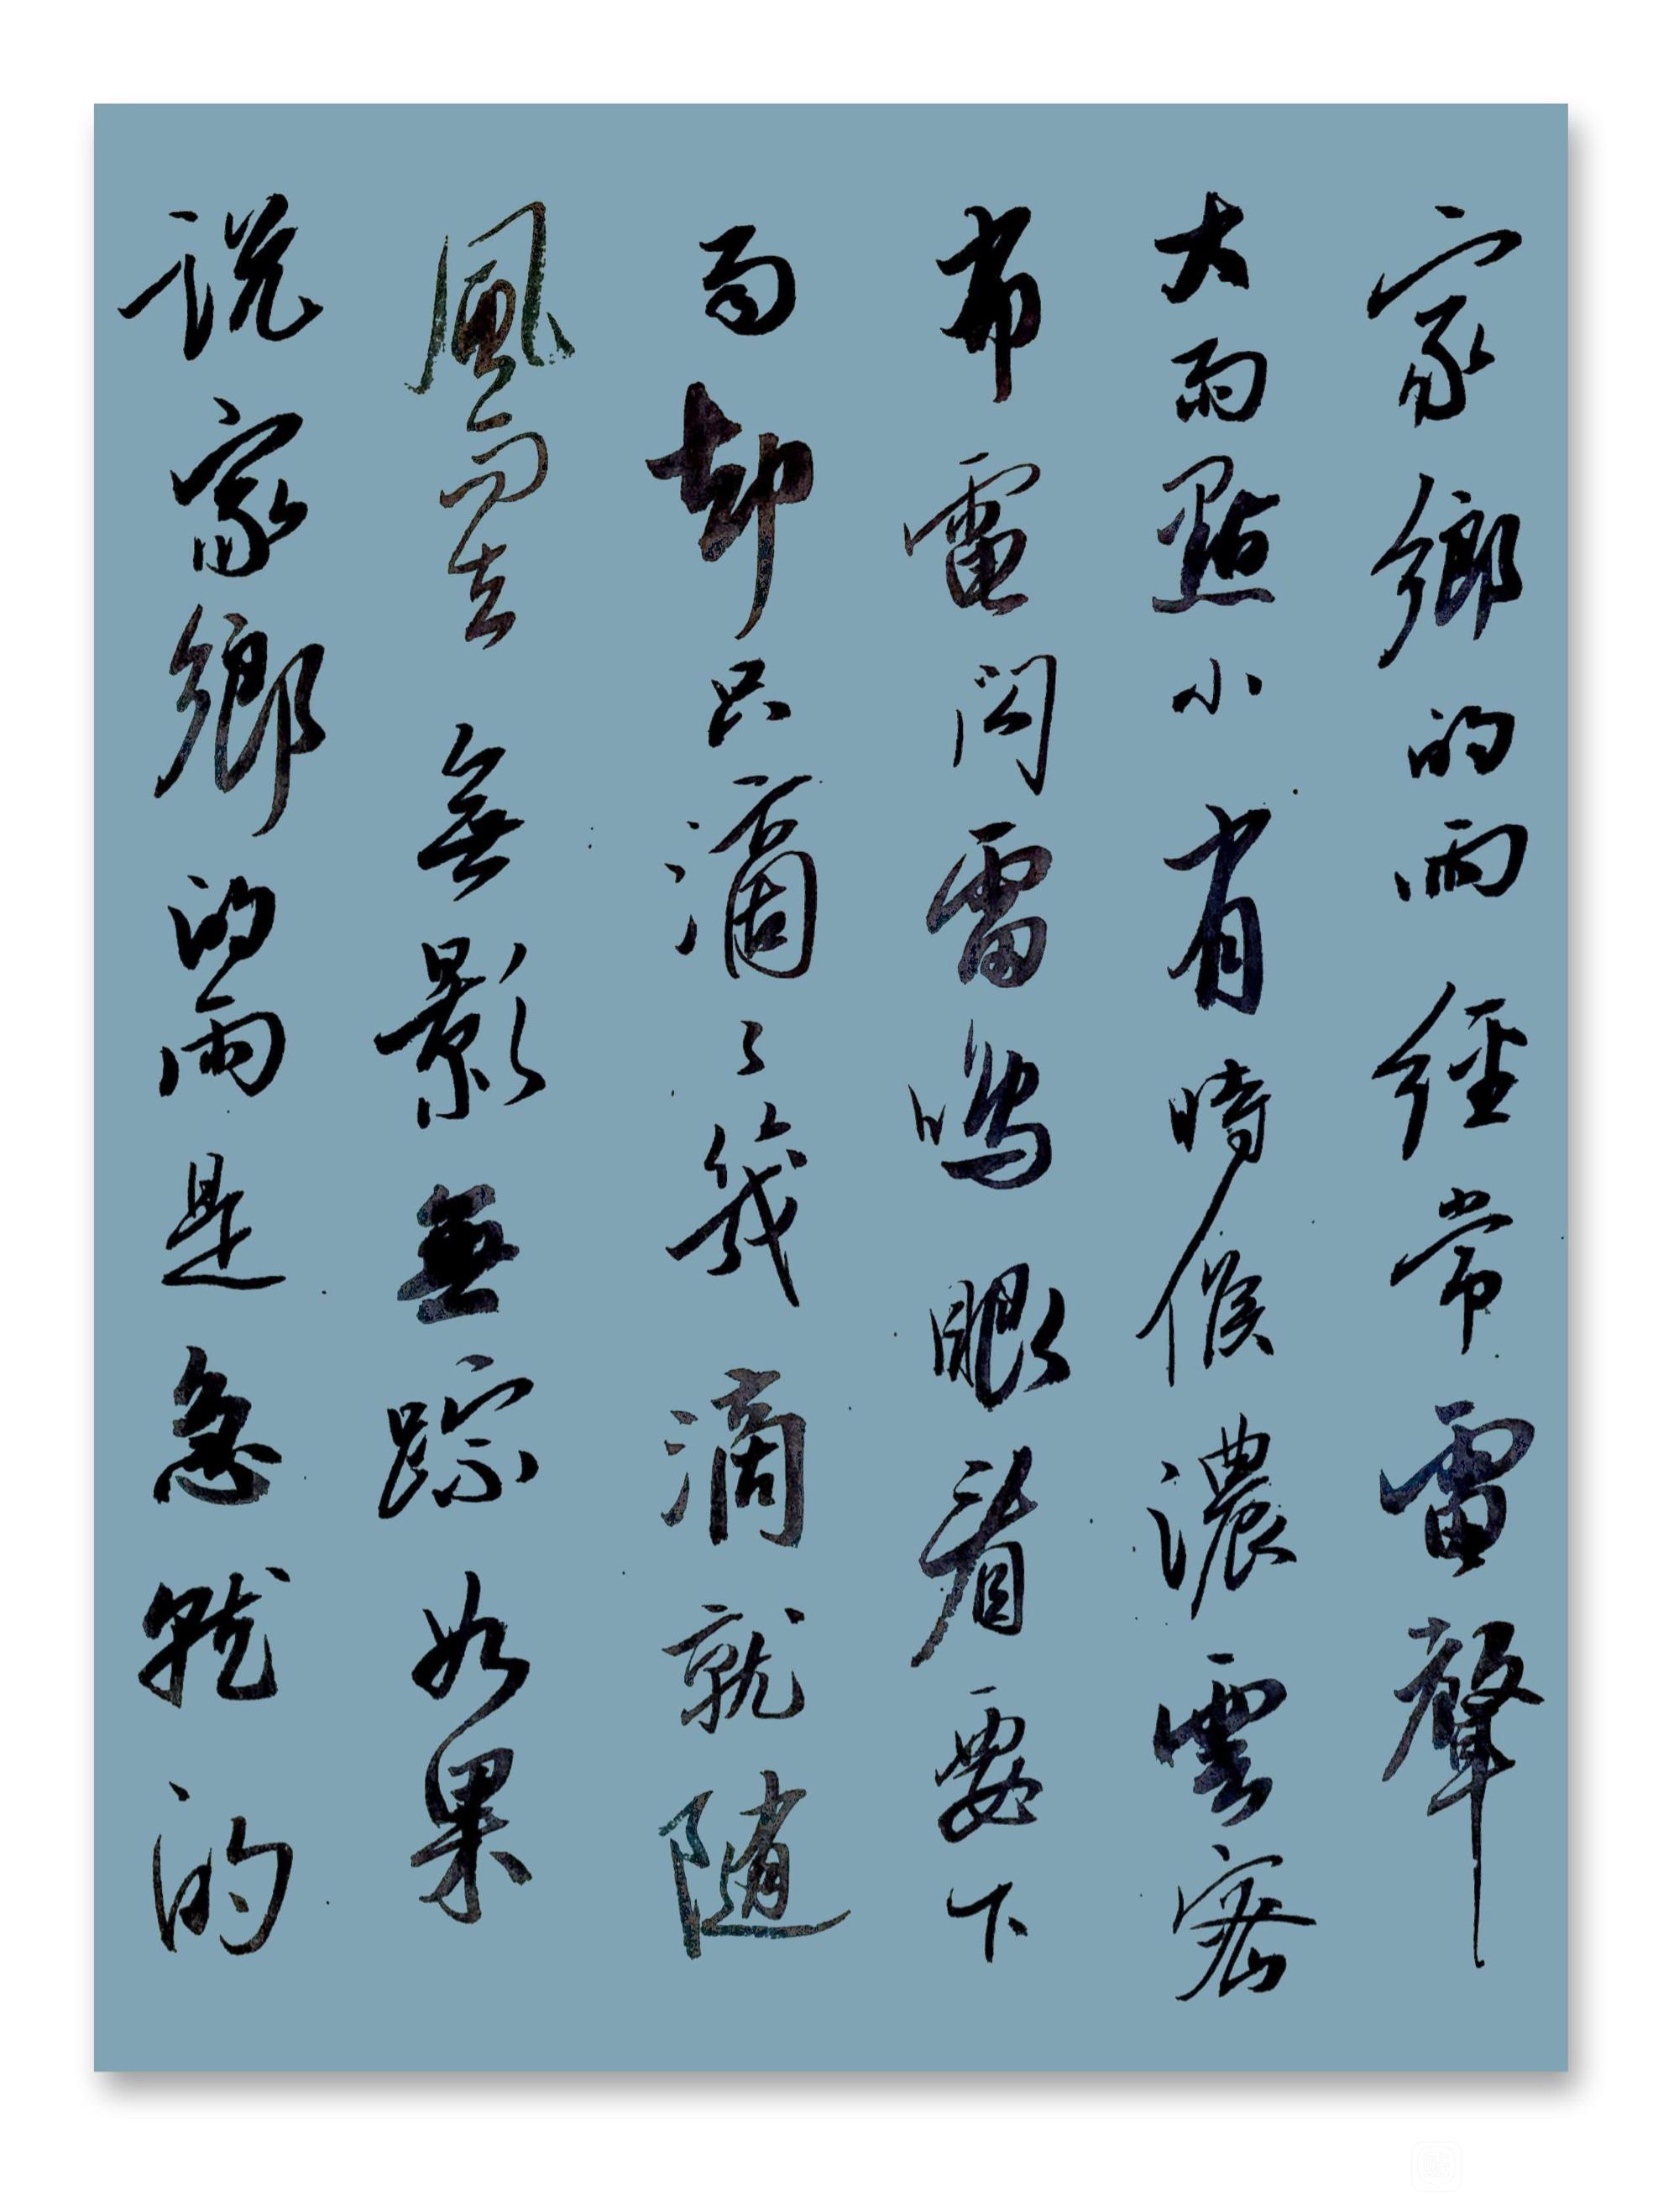 家鄉的雨經常雷聲
大雨點小有時候濃雲密
布電闪雷鳴眼看要下
雨却只滴〻幾滴就随
風而去無影無踪如果
说家鄉的雨是急躁的